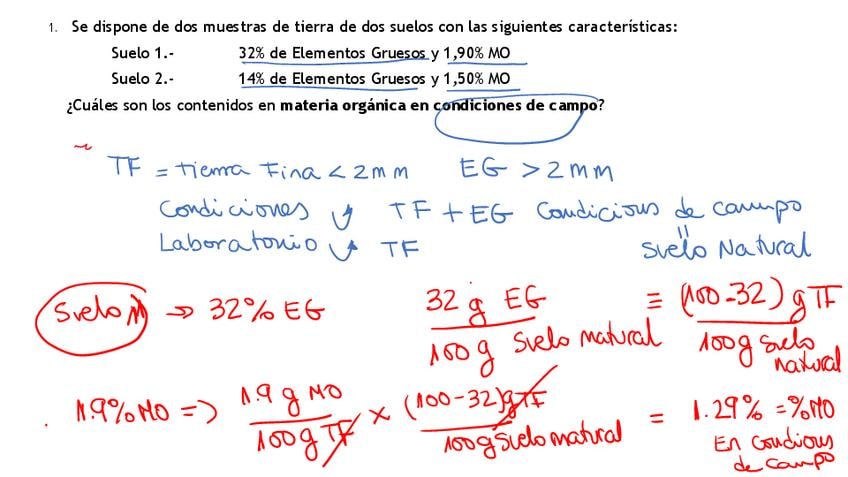 1. Se dispone de dos muestras de tierra de dos suelos con las siguientes características:
Suelo 1.- 32% de Elementos Gruesos y 1,90% MO
Suelo 2.- 14% de Elementos Gruesos y 1,50% MO
¿Cuáles son los contenidos en materia orgánica en condiciones de campo?
TF = Tierra Fina < 2mm EG > 2mm
Condiciones TF + EG Condicious de campo
=
Laboratorio TF Suelo Natural
Suelo 1 → 32% EG 32 g EG / 100 g suelo natural ≡ (100-32) g TF / 100g suelo natural
1.9% MO => 1.9 g MO / 100 g TF × (100-32) g TF / 100g suelo natural = 1.29% = %MO
En Condicious
de campo